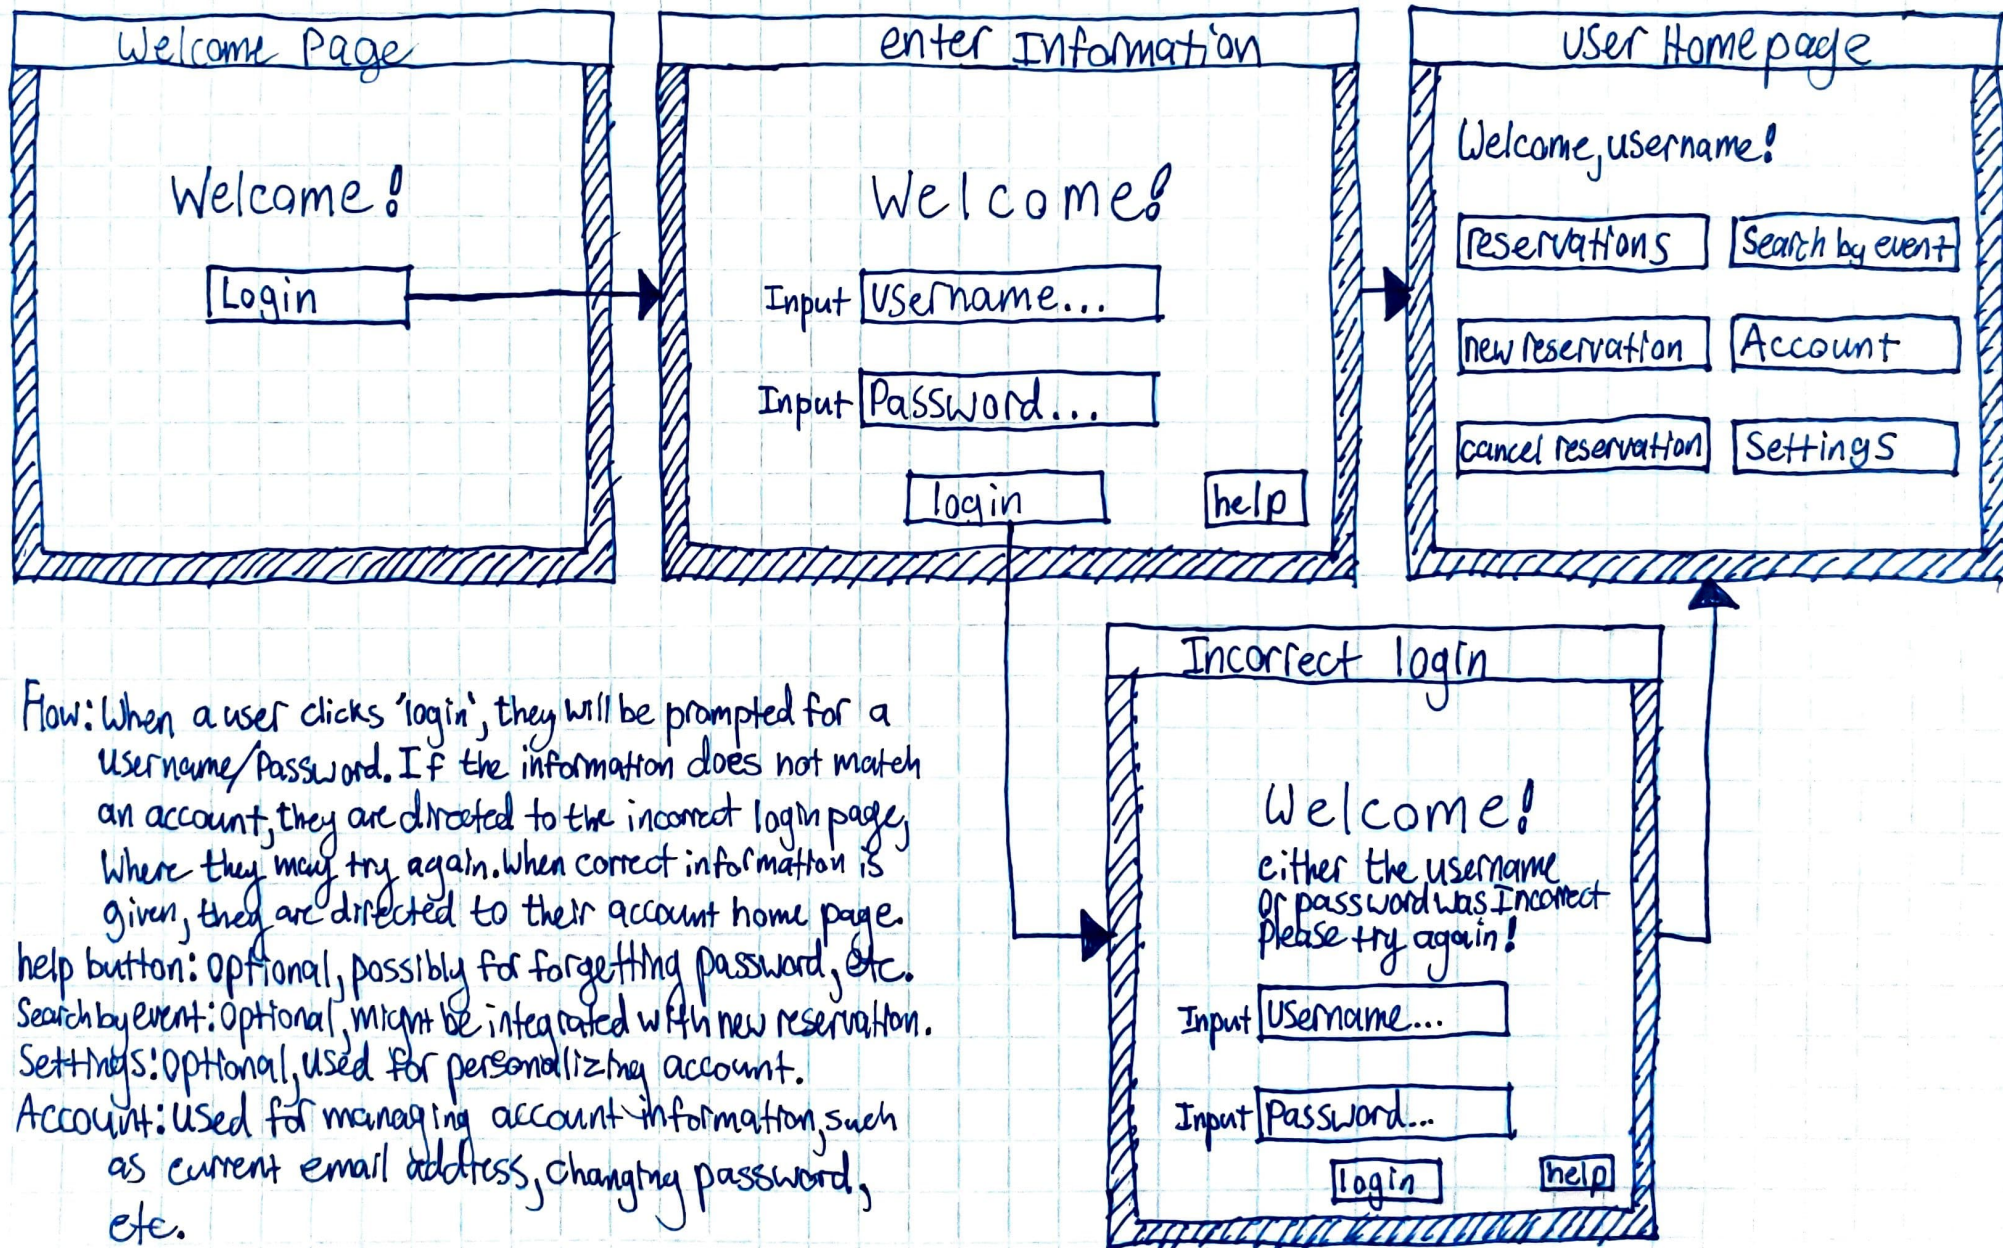 Welcome Page
Welcome!
Login
enter Information
Welcome!
Input Username...
Input Password...
login
help
User Homepage
Welcome, username!
reservations
Search by event
new reservation
Account
cancel reservation
Settings
Incorrect login
Welcome!
either the username
or password was Incorrect
Please try again!
Input Username...
Input Password...
login
help
Flow: When a user clicks 'login', they will be prompted for a
username/Password. If the information does not match
an account, they are directed to the incorrect login page,
Where they may try again. When correct information is
given, they are directed to their account home page.
help button: Optional, possibly for forgetting password, etc.
Search by event: Optional, might be integrated with new reservation.
Settings: Optional, used for personalizing account.
Account: Used for managing account information, such
as current email address, changing password,
etc.